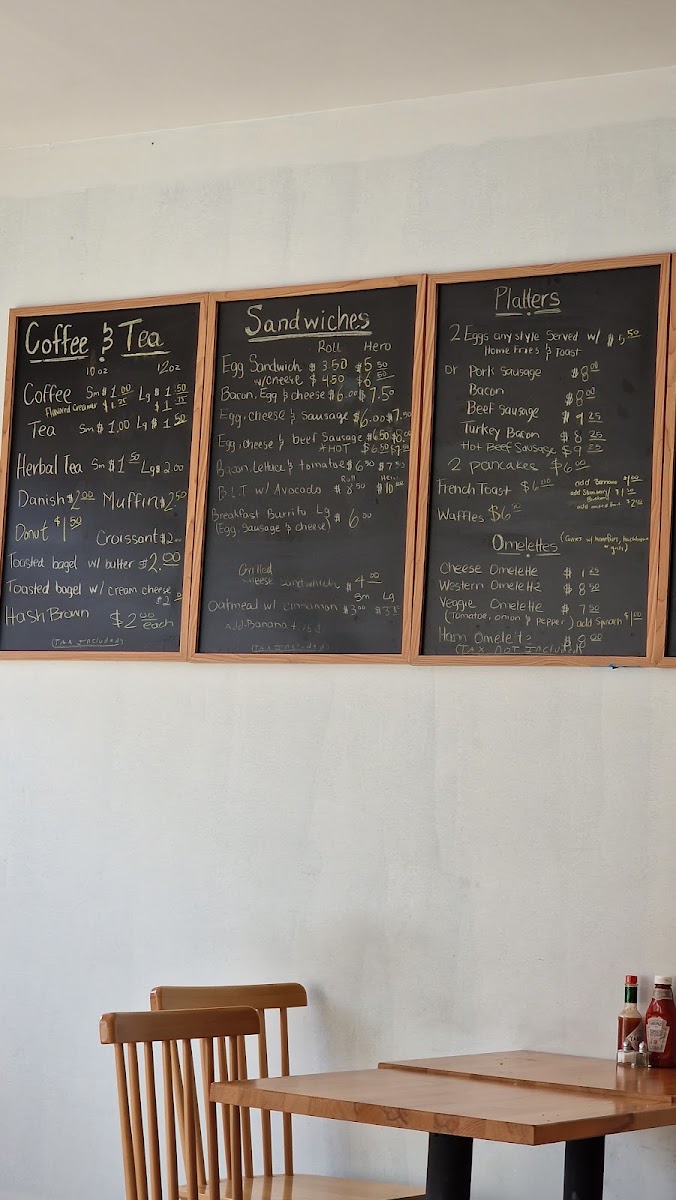 Coffee & Tea
10 oz 12oz
Coffee Sm $1.00 Lg $1.50
Flavored Creamer $1.25 $1.75
Tea Sm $1.00 Lg $1.50
Herbal Tea Sm $1.50 Lg $2.00
Danish $2.00 Muffin $2.50
Donut $1.50
Croissant $2.00
Toasted bagel w/ butter $2.00
Toasted bagel w/ cream cheese
Hash Brown $2.00 each
(TAX INCLUDED)
Sandwiches
Roll Hero
Egg Sandwich $3.50 $5.50
w/cheese $4.50 $6.50
Bacon, Egg & cheese $6.00 $7.50
Egg, cheese & Sausage $6.00 $7.50
Egg, cheese & beef Sausage $6.50 $8.00
*HOT $6.50
Bacon, Lettuce & tomatoe $6.50 $7.50
Roll Hero
B.L.T w/ Avocado $8.50 $10.00
Breakfast Burrito Lg $6.00
(Egg, Sausage & cheese)
Grilled
cheese sandwhich $4.00
Sm Lg
Oatmeal w/ cinnamon $3.00
Add Banana +
Platters
2 Eggs any style Served w/ $5.50
Home Fries & Toast
or Pork Sausage $8.00
Bacon $8.00
Beef Sausage $9.25
Turkey Bacon $8.25
Hot Beef Sausage $9.25
2 pancakes $6.00
French Toast $6.00
add Banana $1.00
add Strawberry/
Waffles $6
Omelettes
Cheese Omelette
Western Omelette $8.50
Veggie Omelette $7.50
(Tomatoe, onion & pepper) add Spinach $1.00
Ham Omelette $8.00
(TAX NOT INCLUDED)